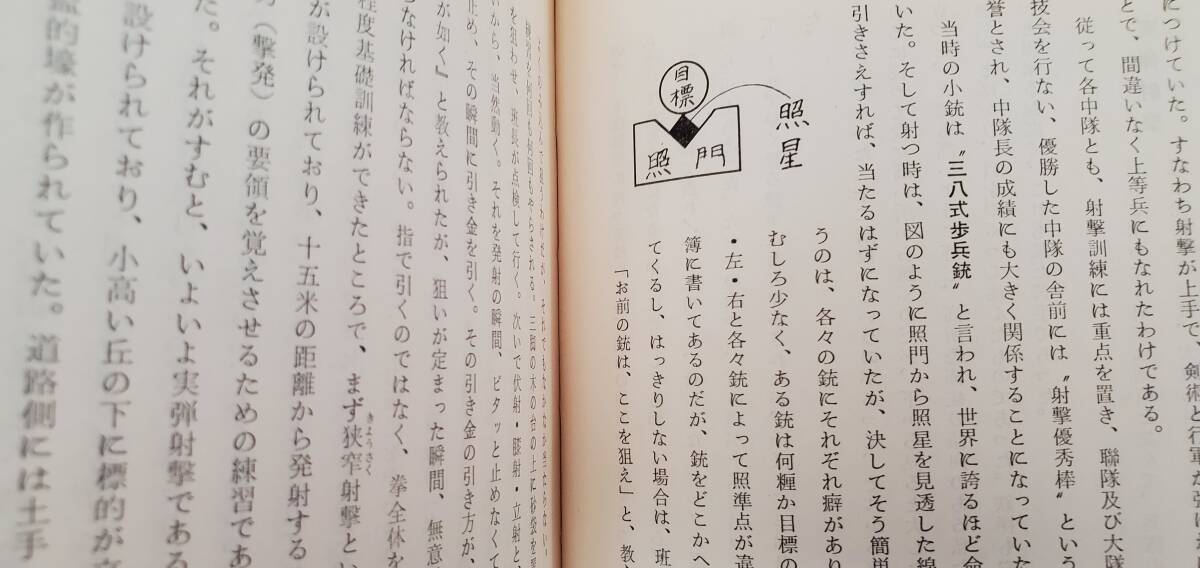 につけていた。すなわち射撃が上手で、剣術と行軍が
とで、間違いなく上等兵にもなれたわけである。
従って各中隊とも、射撃訓練には重点を置き、聯隊及び大隊
技会を行ない、優勝した中隊の舎前には〝射撃優秀棒〟という
誉とされ、中隊長の成績にも大きく関係することになっていた
当時の小銃は〝三八式歩兵銃〟と言われ、世界に誇るほど命
いた。そして射つ時は、図のように照門から照星を見透した線
引きさえすれば、当たるはずになっていたが、決してそう簡単
照星
目標
照門
うのは、各々の銃にそれぞれ癖があり
むしろ少なく、ある銃は何糎か目標の
・左・右と各々銃によって照準点が違
簿に書いてあるのだが、銃をどこかへ
てくるし、はっきりしない場合は、班
「お前の銃は、ここを狙え」と、教
を狙わせ、班長が点検して行く。次いで伏射・膝射・立射と、
いから、当然動く。それを発射の瞬間、ピタッと止めなくて
止め、その瞬間に引き金を引く。その引き金の引き方が、
が如く』と教えられたが、狙いが定まった瞬間、無意
らなければならない。指で引くのではなく、拳全体を
程度基礎訓練ができたところで、まず狭窄射撃とい
きょうさく
が設けられており、十五米の距離から発射する
(撃発)の要領を覚えさせるための練習であ
た。それがすむと、いよいよ実弾射撃である
設けられており、小高い丘の下に標的が
的壕が作られていた。道路側には土手